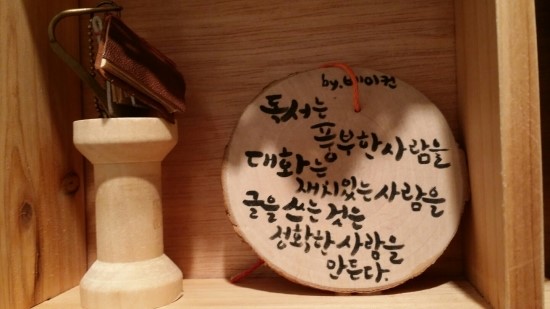 by.베이컨
독서는
풍부한사람을
대화는
재치있는사람을
글을 쓰는 것은
정확한사람을
만든다.